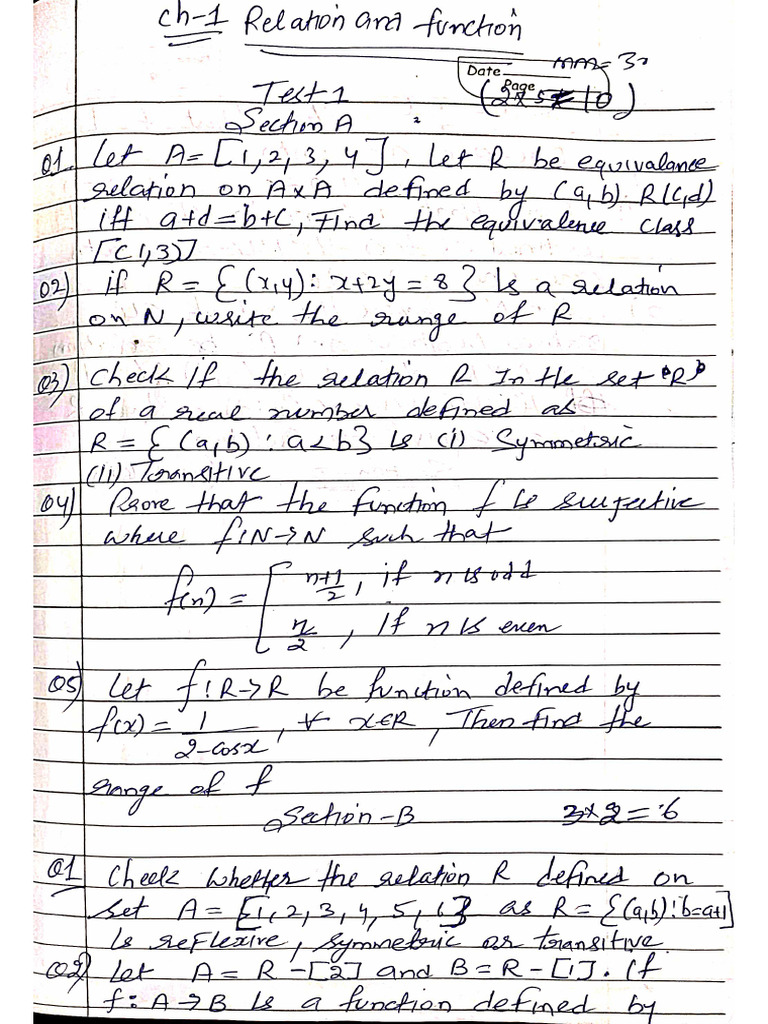 Ch-1 Relation and function
MM=30
Date
Page
Test 1 (2x5=10)
Section A
Q1. Let A=[1,2,3,4], Let R be equivalance
relation on AxA defined by (a,b) R(c,d)
iff a+d=b+c, Find the equivalence class
[(1,3)]
Q2) if R={(x,y): x+2y=8} Is a relation
on N, write the range of R
Q3) Check If the relation R In the set 'R'
of a real number defined as
R={(a,b): a<b} Is (i) Symmetric
(ii) Transitive
Q4) Prove that the function f Is surjective
where f:N→N such that
f(n)=[ n+1/2, if n is odd
n/2, If n is even
Q5) Let f:R→R be function defined by
f(x)= 1/2-cosx, ∀ x∈R, Then find the
range of f
Section-B 3x2=6
Q1 Check Whether the relation R defined on
set A={1,2,3,4,5,6} as R={(a,b):b=a+1}
Is reflexive, symmetric or transitive.
Q2) Let A=R-[2] and B=R-[1]. If
f:A→B Is a function defined by